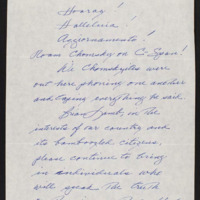 Hooray!
Halleluia!
Aggiornamento!
Noam Chomsky on C-Span!
We Chomskyites were
out there phoning one another
and taping everything he said.
Brian Lamb, in the
interests of our country and
its bamboozled citizens,
please continue to bring
on individuals who
will speak the truth